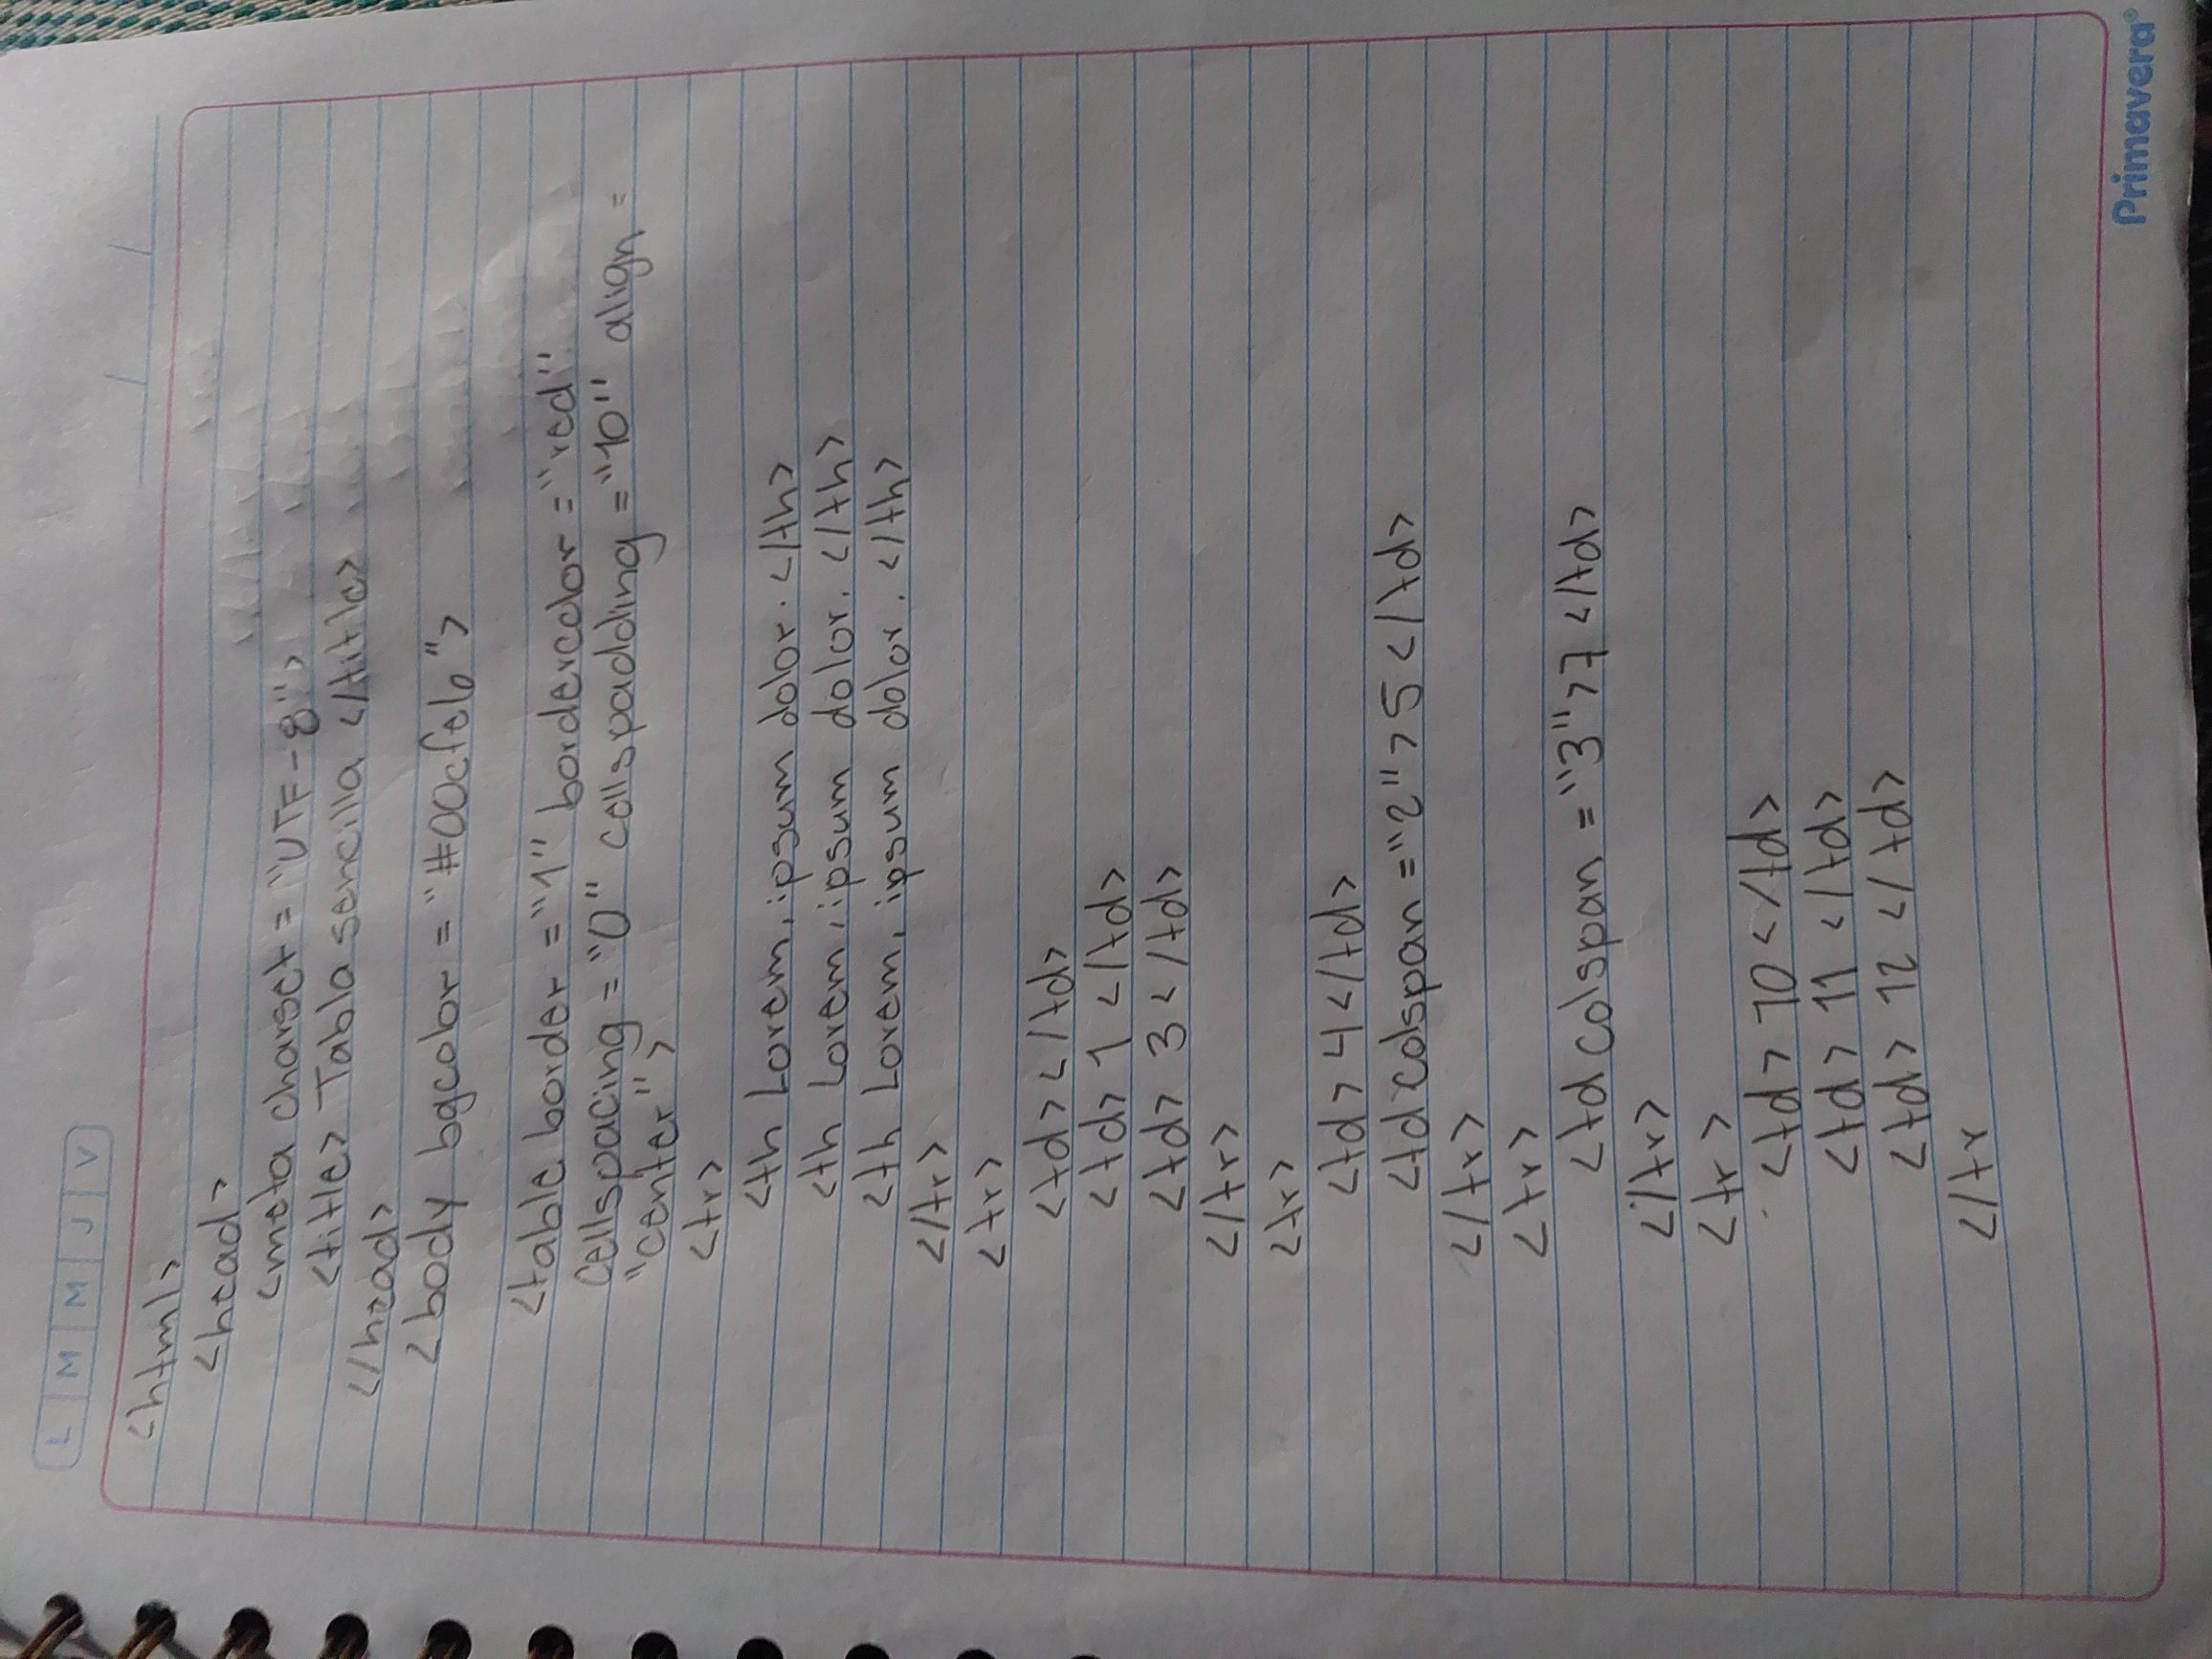 L M M J V
<html>
<head>
<meta charset="UTF-8">
<title> Tabla sencilla </title>
</head>
<body bgcolor="#00cfeb">
<table border="1" bordercolor="red"
cellspacing="0" cellspadding="10" align=
"center">
<tr>
<th Lorem, ipsum dolor. </th>
<th Lorem, ipsum dolor. </th>
<th Lorem, ipsum dolor. </th>
</tr>
<tr>
<td> </td>
<td> 1 </td>
<td> 3 </td>
</tr>
<tr>
<td> 4 </td>
<td colspan="2"> 5 </td>
</tr>
<tr>
<td colspan="3"> 7 </td>
</tr>
<tr>
<td> 10 </td>
<td> 11 </td>
<td> 12 </td>
</tr
Primavera®